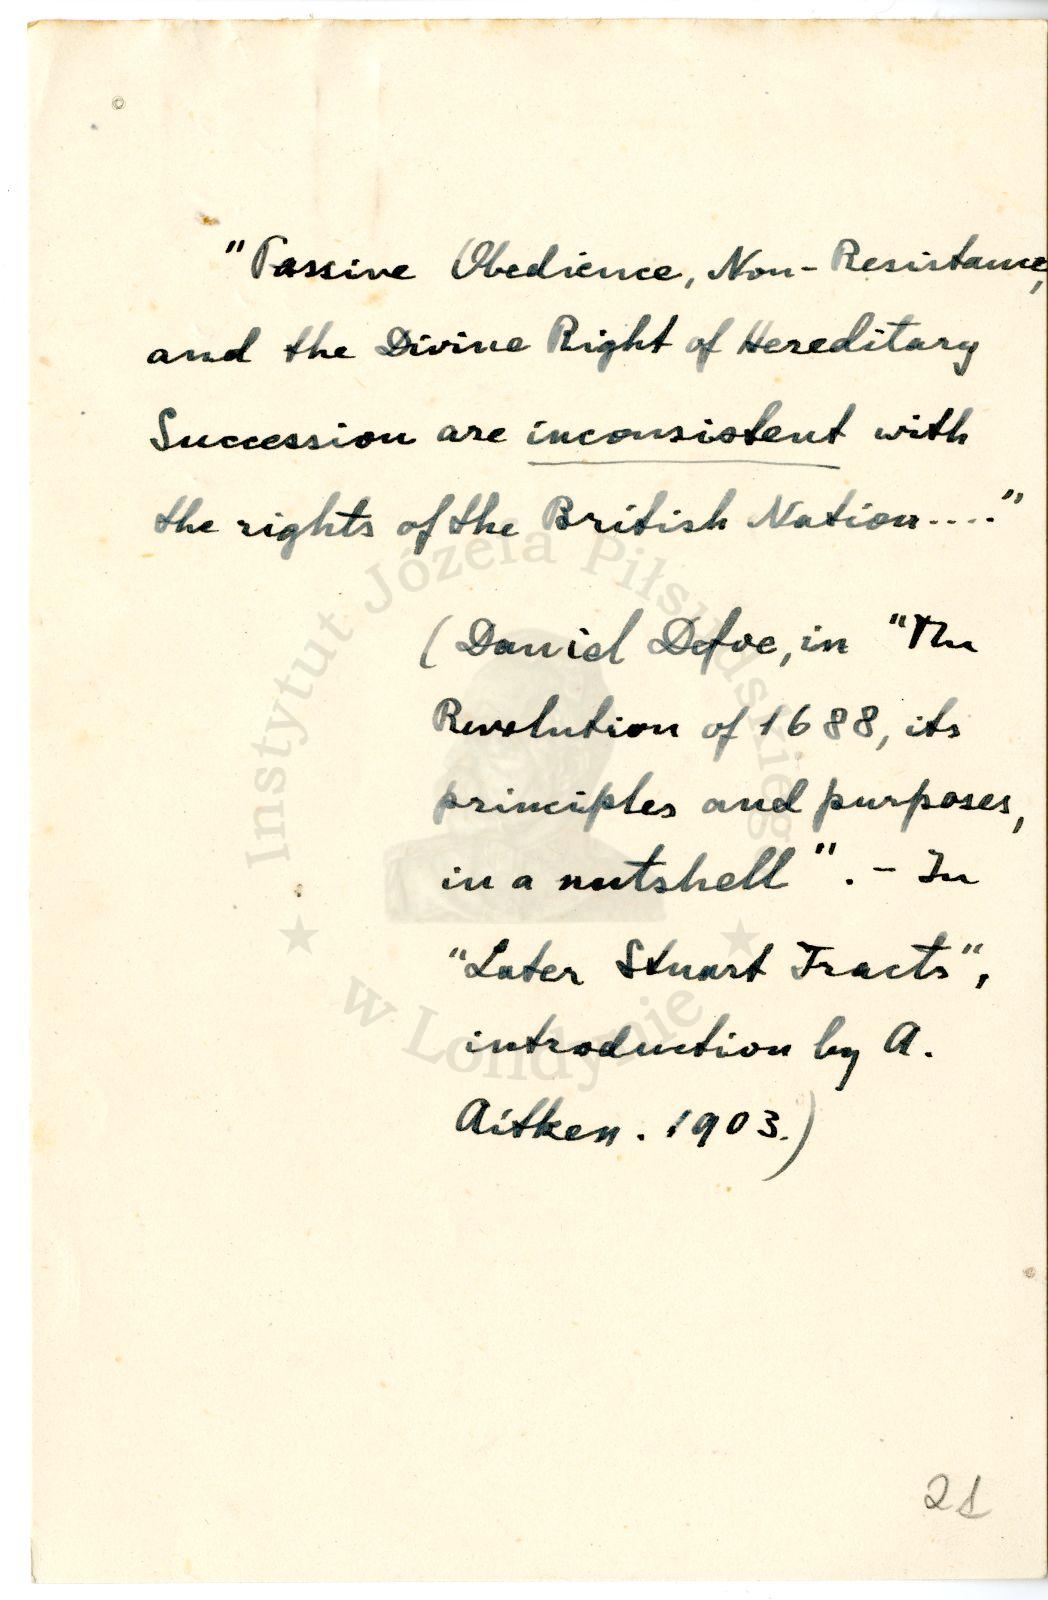 "Passive Obedience, Non-Resistance,
and the Divine Right of Hereditary
Succession are inconsistent with
the rights of the British Nation...."
(Daniel Defoe, in "The
Revolution of 1688, its
principles and purposes,
in a nutshell". - In
"Later Stuart Tracts",
introduction by A.
Aitken. 1903.)
Instytut Józefa Piłsudskiego
w Londynie
21